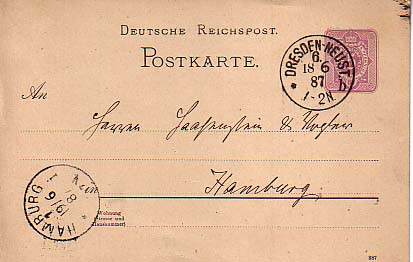 DEUTSCHE REICHSPOST.
POSTKARTE.
DRESDEN-NEUST.
6.
18 6
87
1-2N
b
An
Herren Haasenstein & Vogler
in
Hamburg
HAMBURG 1.
19/6
87
Wohnung
(Strasse und
Hausnummer)
887